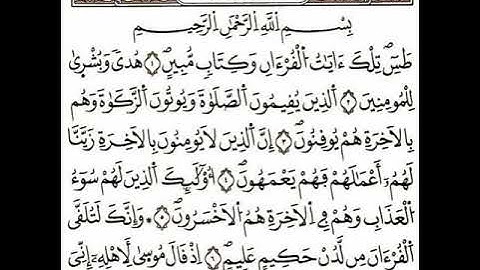 بِسْمِ اِ۬للَّهِ اِ۬لرَّحْمَٰنِ اِ۬لرَّحِيمِ
طَسِٓ تِلْكَ ءَايَٰتُ اُ۬لْقُرْءَانِ وَكِتَابٖ مُّبِينٍ ١ هُدىٗ وَبُشْر۪ىٰ
لِلْمُومِنِينَ ٢ اَ۬لذِينَ يُقِيمُونَ اَ۬لصَّلَوٰةَ وَيُوتُونَ اَ۬لزَّكَوٰةَ وَهُم
بِالَاخِرَةِ هُمْ يُوقِنُونَ ٣ إِنَّ اَ۬لذِينَ لَا يُومِنُونَ بِالَاخِرَةِ زَيَّنَّا
لَهُمُۥٓ أَعْمَٰلَهُمْ فَهُمْ يَعْمَهُونَ ٤ أُوْلَٰٓئِكَ اَ۬لذِينَ لَهُمْ سُوٓءُ
اُ۬لْعَذَابِ وَهُمْ فِے اِ۬لَاخِرَةِ هُمُ اُ۬لَاخْسَرُونَ ٥ وَإِنَّكَ لَتُلَقَّى
اَ۬لْقُرْءَانَ مِن لَّدُنْ حَكِيمٍ عَلِيمٍ ٦ إِذْ قَالَ مُوس۪ىٰ لِأَهْلِهِۦٓ إِنِّيَ